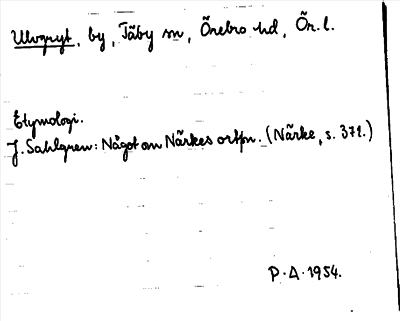 Ulvgryt, by, Täby sn, Örebro hd, Ör. l.
Etymologi.
J. Sahlgren: Något om Närkes ortn. (Närke, s. 371.)
P.A. 1954.